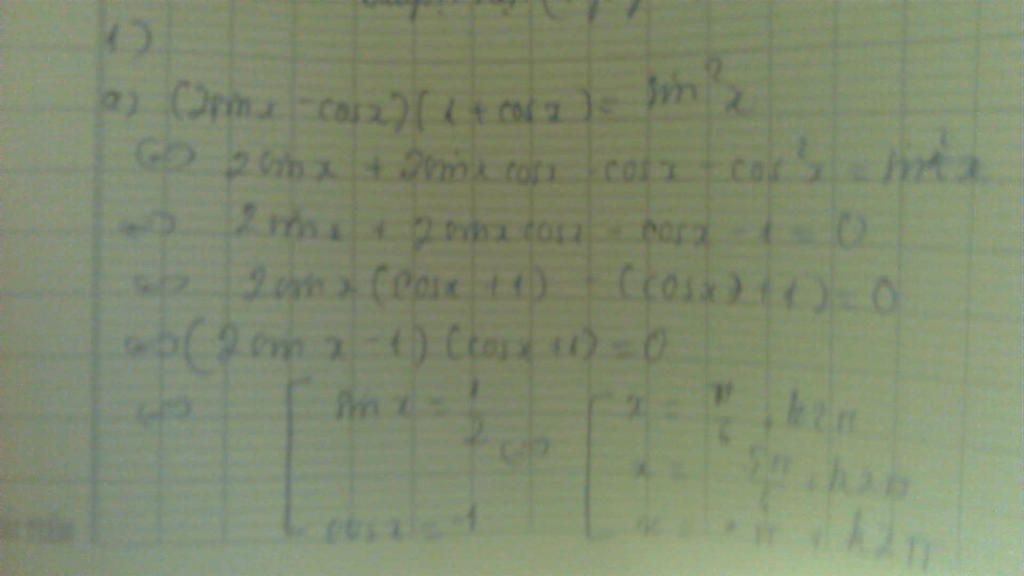 1)
a) (2sinx - cosx)(1 + cosx) = sin²x
<=> 2sinx + 2sinxcosx - cosx - cos²x = sin²x
<=> 2sinx + 2sinxcosx - cosx - 1 = 0
<=> 2sinx (cosx + 1) - (cosx) + 1) = 0
<=> (2sinx - 1)(cosx + 1) = 0
<=> [ sinx = 1/2 <=> [ x = π/6 + k2π
x = 5π/6 + k2π
cosx = -1 x = π + k2π